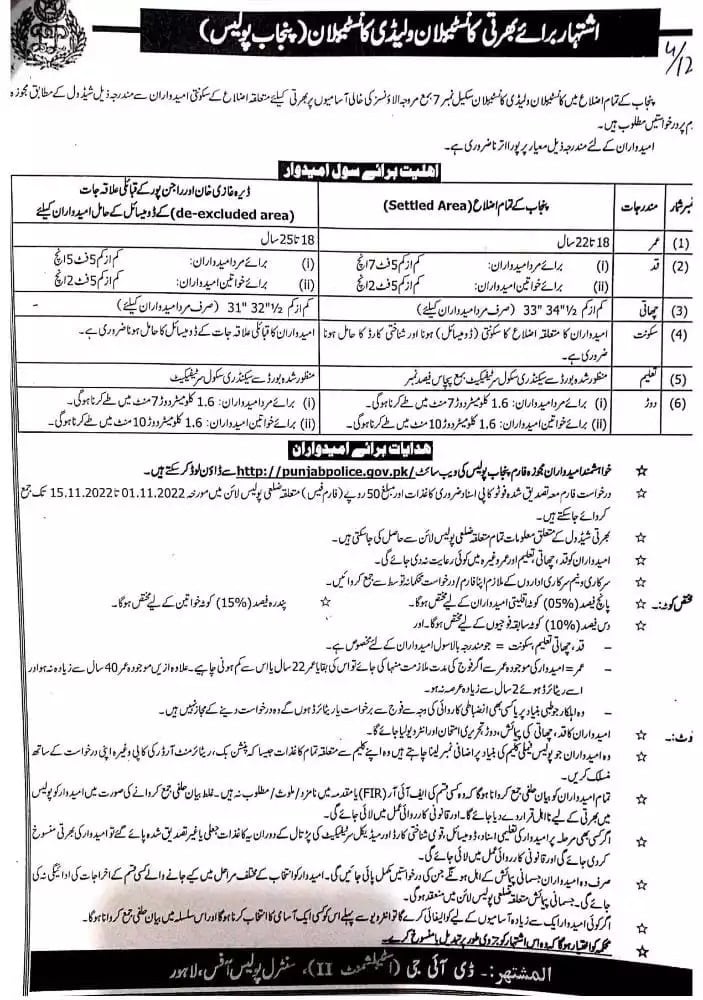 اشتہار برائے بھرتی کانسٹیبلان و لیڈی کانسٹیبلان (پنجاب پولیس)
4/12
پنجاب کے تمام اضلاع میں کانسٹیبلان و لیڈی کانسٹیبلان سکیل نمبر 7 بمع مروجہ الاؤنسز کی خالی آسامیوں پر بھرتی کیلئے متعلقہ اضلاع کے سکونتی امیدواران سے مندرجہ ذیل شیڈول کے مطابق مجوزہ
م پر درخواستیں مطلوب ہیں۔
امیدواران کے لئے مندرجہ ذیل معیار پر پورا اترنا ضروری ہے۔
اہلیت برائے سول امیدوار
نمبر شمار مندرجات پنجاب کے تمام اضلاع (Settled Area) ڈیرہ غازی خان اور راجن پور کے قبائلی علاقہ جات
(de-excluded area) کے ڈومیسائل کے حامل امیدواران کیلئے
(1) عمر 18 تا 22 سال 18 تا 25 سال
(2) قد (i) برائے مرد امیدواران: کم از کم 5 فٹ 7 انچ (i) برائے مرد امیدواران: کم از کم 5 فٹ 5 انچ
(ii) برائے خواتین امیدواران: کم از کم 5 فٹ 2 انچ (ii) برائے خواتین امیدواران: کم از کم 5 فٹ 2 انچ
(3) چھاتی کم از کم 33" 34½" (صرف مرد امیدواران کیلئے) کم از کم 31" 32½" (صرف مرد امیدواران کیلئے)
(4) سکونت امیدواران کا متعلقہ اضلاع کا سکونتی (ڈومیسائل) ہونا اور شناختی کارڈ کا حامل ہونا امیدواران کا قبائلی علاقہ جات کے ڈومیسائل کا حامل ہونا ضروری ہے۔
ضروری ہے۔
(5) تعلیم منظور شدہ بورڈ سے سیکنڈری سکول سرٹیفکیٹ بمع پچاس فیصد نمبر منظور شدہ بورڈ سے سیکنڈری سکول سرٹیفکیٹ
(6) دوڑ (i) برائے مرد امیدواران: 1.6 کلومیٹر دوڑ 7 منٹ میں طے کرنا ہوگی۔ (i) برائے مرد امیدواران: 1.6 کلومیٹر دوڑ 7 منٹ میں طے کرنا ہوگی۔
(ii) برائے خواتین امیدواران: 1.6 کلومیٹر دوڑ 10 منٹ میں طے کرنا ہوگی۔ (ii) برائے خواتین امیدواران: 1.6 کلومیٹر دوڑ 10 منٹ میں طے کرنا ہوگی۔
ہدایات برائے امیدواران
☆ خواہشمند امیدواران مجوزہ فارم پنجاب پولیس کی ویب سائٹ http://punjabpolice.gov.pk/ سے ڈاؤن لوڈ کر سکتے ہیں۔
☆ درخواست فارم معہ تصدیق شدہ فوٹو کاپی اسناد ضروری کاغذات اور مبلغ 50 روپے (فارم فیس) متعلقہ ضلعی پولیس لائن میں مورخہ 01.11.2022 تا 15.11.2022 تک جمع
کروائے جا سکتے ہیں۔
☆ بھرتی شیڈول کے متعلق معلومات تمام متعلقہ ضلعی پولیس لائن سے حاصل کی جا سکتی ہیں۔
☆ امیدواران کو قد، چھاتی، تعلیم اور عمر وغیرہ میں کوئی رعایت نہ دی جائے گی۔
☆ سرکاری و نیم سرکاری اداروں کے ملازم اپنا فارم/درخواست محکمانہ توسط سے جمع کروائیں۔
مختص کوٹہ:۔ ☆ پانچ فیصد (05%) کوٹہ اقلیتی امیدواران کے لیے مختص ہوگا۔ ☆ پندرہ فیصد (15%) کوٹہ خواتین کے لیے مختص ہوگا۔
☆ دس فیصد (10%) کوٹہ سابقہ فوجیوں کے لیے مختص ہوگا۔ اور
– قد، چھاتی تعلیم، سکونت = جو مندرجہ بالا سول امیدواران کے لئے مخصوص ہے۔
– عمر = امیدوار کی موجودہ عمر سے اگر فوج کی مدت ملازمت منہا کی جائے تو اس کی بقایا عمر 22 سال یا اس سے کم ہونی چاہیے۔ علاوہ ازیں موجودہ عمر 40 سال سے زیادہ نہ ہو اور
اسے ریٹائرڈ ہوئے 2 سال سے زیادہ عرصہ نہ ہو۔
– وہ اہلکار جو طبی بنیاد پر یا کسی بھی انضباطی کاروائی کی وجہ سے فوج سے برخواست یا ریٹائرڈ ہوں گے وہ درخواست دینے کے مجاز نہیں ہیں۔
وٹ:۔ ☆ امیدواران کا قد، چھاتی کی پیمائش، دوڑ، تحریری امتحان اور انٹرویو لیا جائے گا۔
☆ وہ امیدواران جو پولیس فیملی کلیم کی بنیاد پر اضافی نمبر لینا چاہتے ہیں وہ اپنے کلیم سے متعلقہ تمام کاغذات جیسا کہ پنشن بک، ریٹائرمنٹ آرڈر کی کاپی وغیرہ اپنی درخواست کے ساتھ
منسلک کریں۔
☆ تمام امیدواران کو بیان حلفی جمع کروانا ہوگا کہ وہ کسی قسم کی ایف آئی آر (FIR) یا مقدمہ میں نامزد/ملوث/مطلوب نہ ہیں۔ غلط بیان حلفی جمع کروانے کی صورت میں امیدوار کو پولیس
میں بھرتی کے لیے نااہل قرار دے دیا جائے گا۔ اور قانونی کارروائی عمل میں لائی جائے گی۔
☆ اگر کسی بھی مرحلہ پر امیدوار کی تعلیمی اسناد، ڈومیسائل، قومی شناختی کارڈ اور میڈیکل سرٹیفکیٹ کی پڑتال کے دوران یہ کاغذات جعلی یا غیر تصدیق شدہ پائے گئے تو امیدوار کی بھرتی منسوخ
کر دی جائے گی اور قانونی کارروائی عمل میں لائی جائے گی۔
☆ صرف وہ امیدواران جسمانی پیمائش کے اہل ہونگے جن کی درخواستیں مکمل پائی جائیں گی۔ امیدوار کو انتخاب کے مختلف مراحل میں کیے جانے والے کسی قسم کے اخراجات کی ادائیگی نہ کی
جائے گی۔ جسمانی پیمائش متعلقہ ضلعی پولیس لائن میں منعقد ہوگی۔
☆ اگر کوئی امیدوار ایک سے زیادہ آسامیوں کے لیے کوالیفائی کرے گا تو انٹرویو سے پہلے اس کو کسی ایک آسامی کا انتخاب کرنا ہوگا اور اس سلسلہ میں بیان حلفی جمع کروانا ہوگا۔
☆ محکمہ کو اختیار ہوگا کہ وہ اس اشتہار کو جزوی طور پر تبدیل یا منسوخ کرے۔
المشتہر:۔ ڈی آئی جی (اسٹیبلشمنٹ II)، سنٹرل پولیس آفس، لاہور